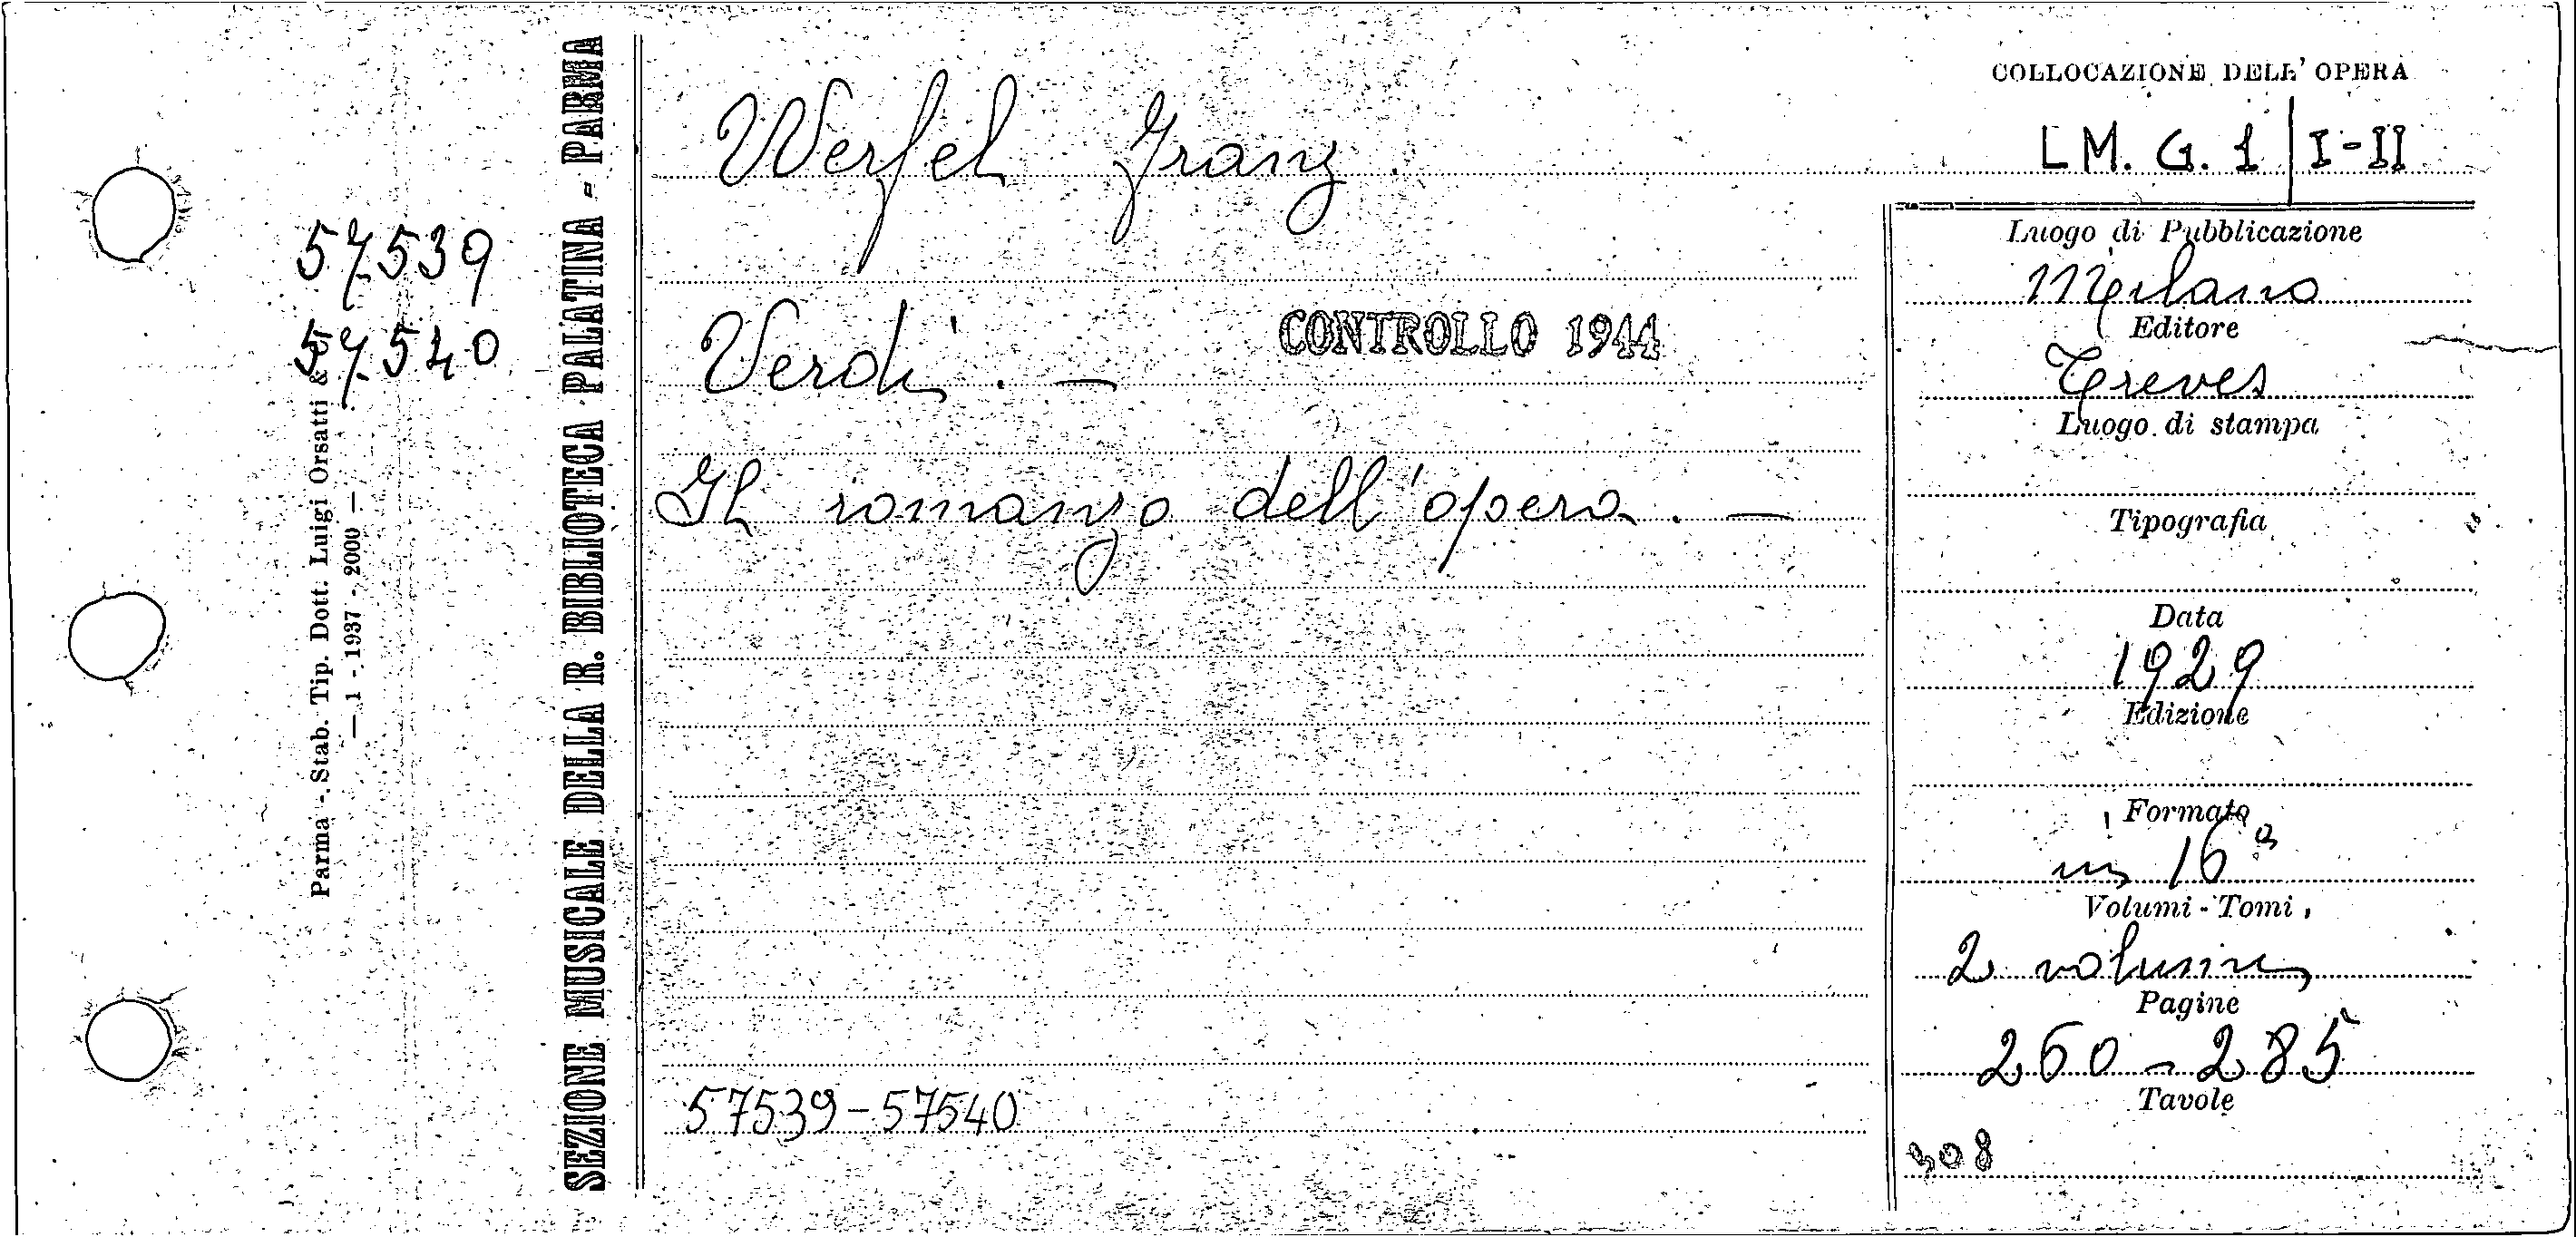 57539
57540
Parma - Stab. Tip. Dott. Luigi Orsatti & C.
— 1 - 1937 - 2000 —
SEZIONE MUSICALE DELLA R. BIBLIOTECA PALATINA - PARMA
Werfel Franz
Verdi. —
CONTROLLO 1944
Il romanzo dell'opera. —
57539-57540
COLLOCAZIONE DELL'OPERA
LM. G. 1 | I-II
Luogo di Pubblicazione
Milano
Editore
Treves
Luogo di stampa
Tipografia
Data
1929
Edizione
Formato
in 16°
Volumi - Tomi
2 volumi
Pagine
260 - 285
Tavole
308